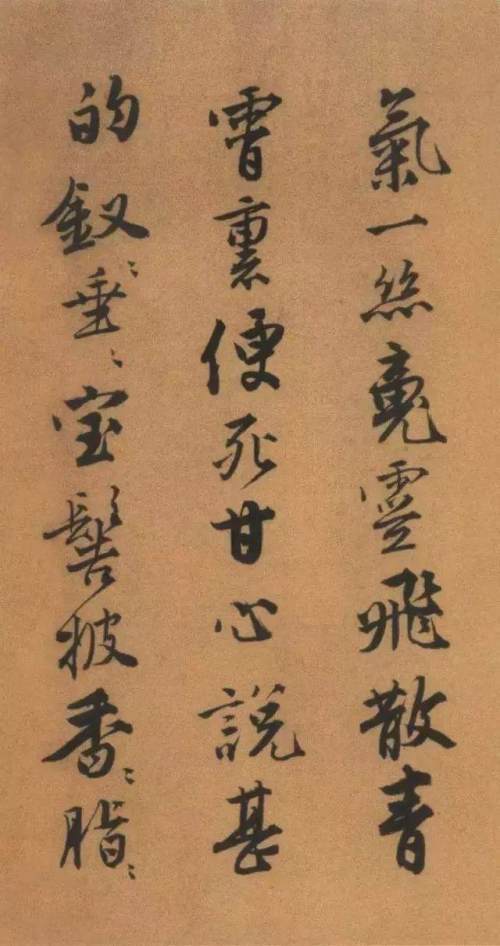 氣一絲竟霊飛散青
霄裏便死甘心說甚
的釵垂宝髻披香脂